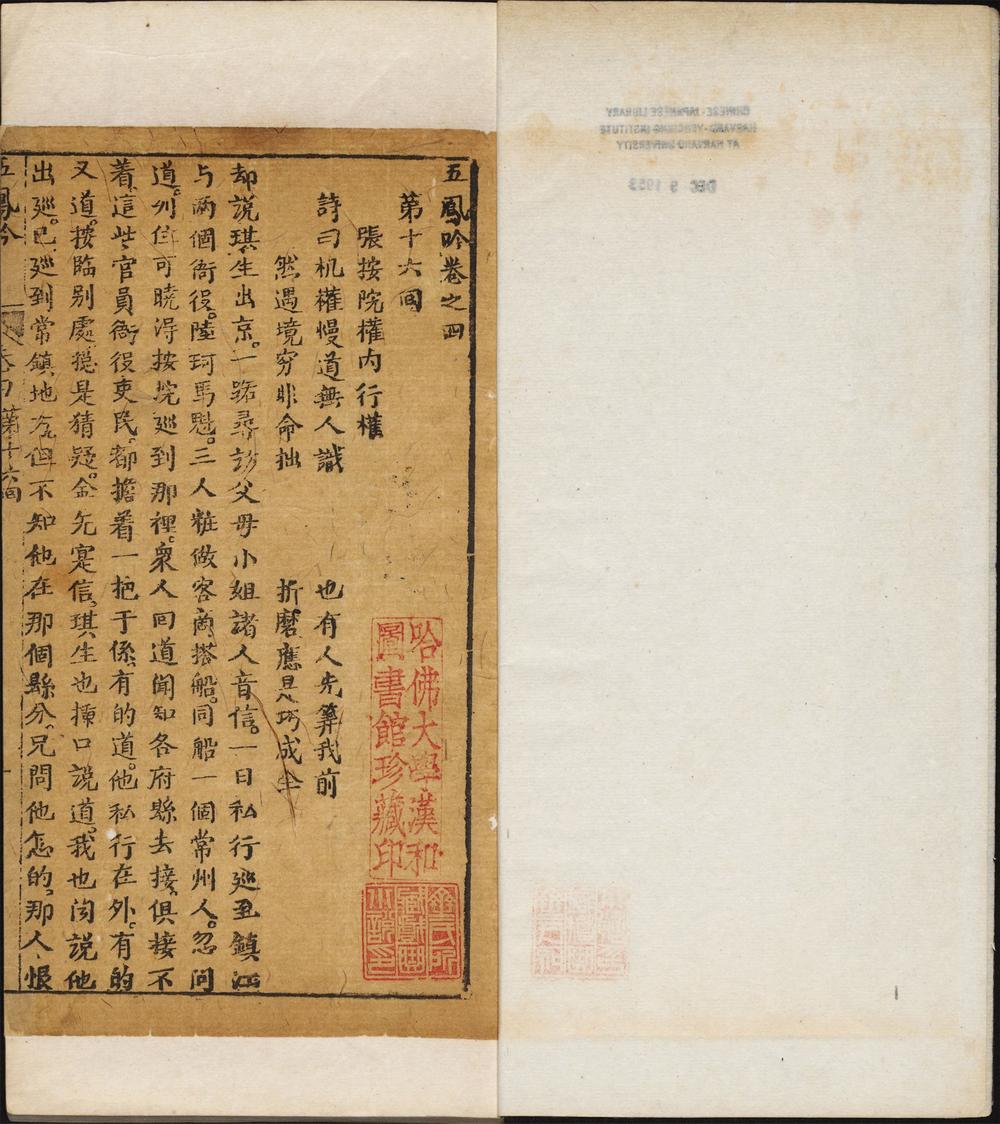 CHINESE-JAPANESE LIBRARY
HARVARD-YENCHING INSTITUTE
AT HARVARD UNIVERSITY
DEC 9 1953
五鳳吟卷之四
第十六回
張按院權内行權
詩曰机權慢道無人識 也有人先筭我前
然遇境穷非命拙 折磨應是巧成全
却說琪生出京。一路尋訪父母小姐諸人音信。一日私行廵至鎮江
与兩個衙役。陸珂馬魁。三人粧做客商搭船。同船一個常州人。忽问
道。列位可曉淂按院廵到那裡。衆人回道聞知各府縣去接。俱接不
着。這些官員衙役吏民。都擔着一把干係。有的道。他私行在外。有的
又道。按臨别處。摠是猜疑。全无寔信。琪生也揷口說道。我也闻說他
出廵。已廵到常鎮地方。但不知他在那個縣分。兄問他怎的。那人恨
五鳳吟 卷四 第十六回
哈佛大學漢和
圖書館珍藏印